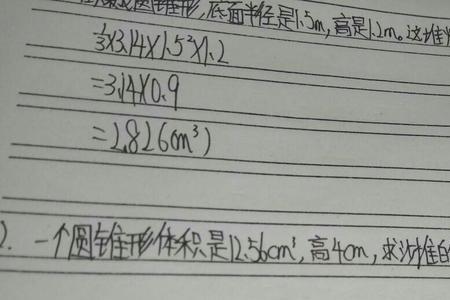 圆锥形,底面半径是1.5m,高是1.2m。这堆
1/3×3.14×1.5²×1.2
=3.14×0.9
=2.826(m³)
2. 一个圆锥形体积是12.56cm³,高4cm,求沙堆的